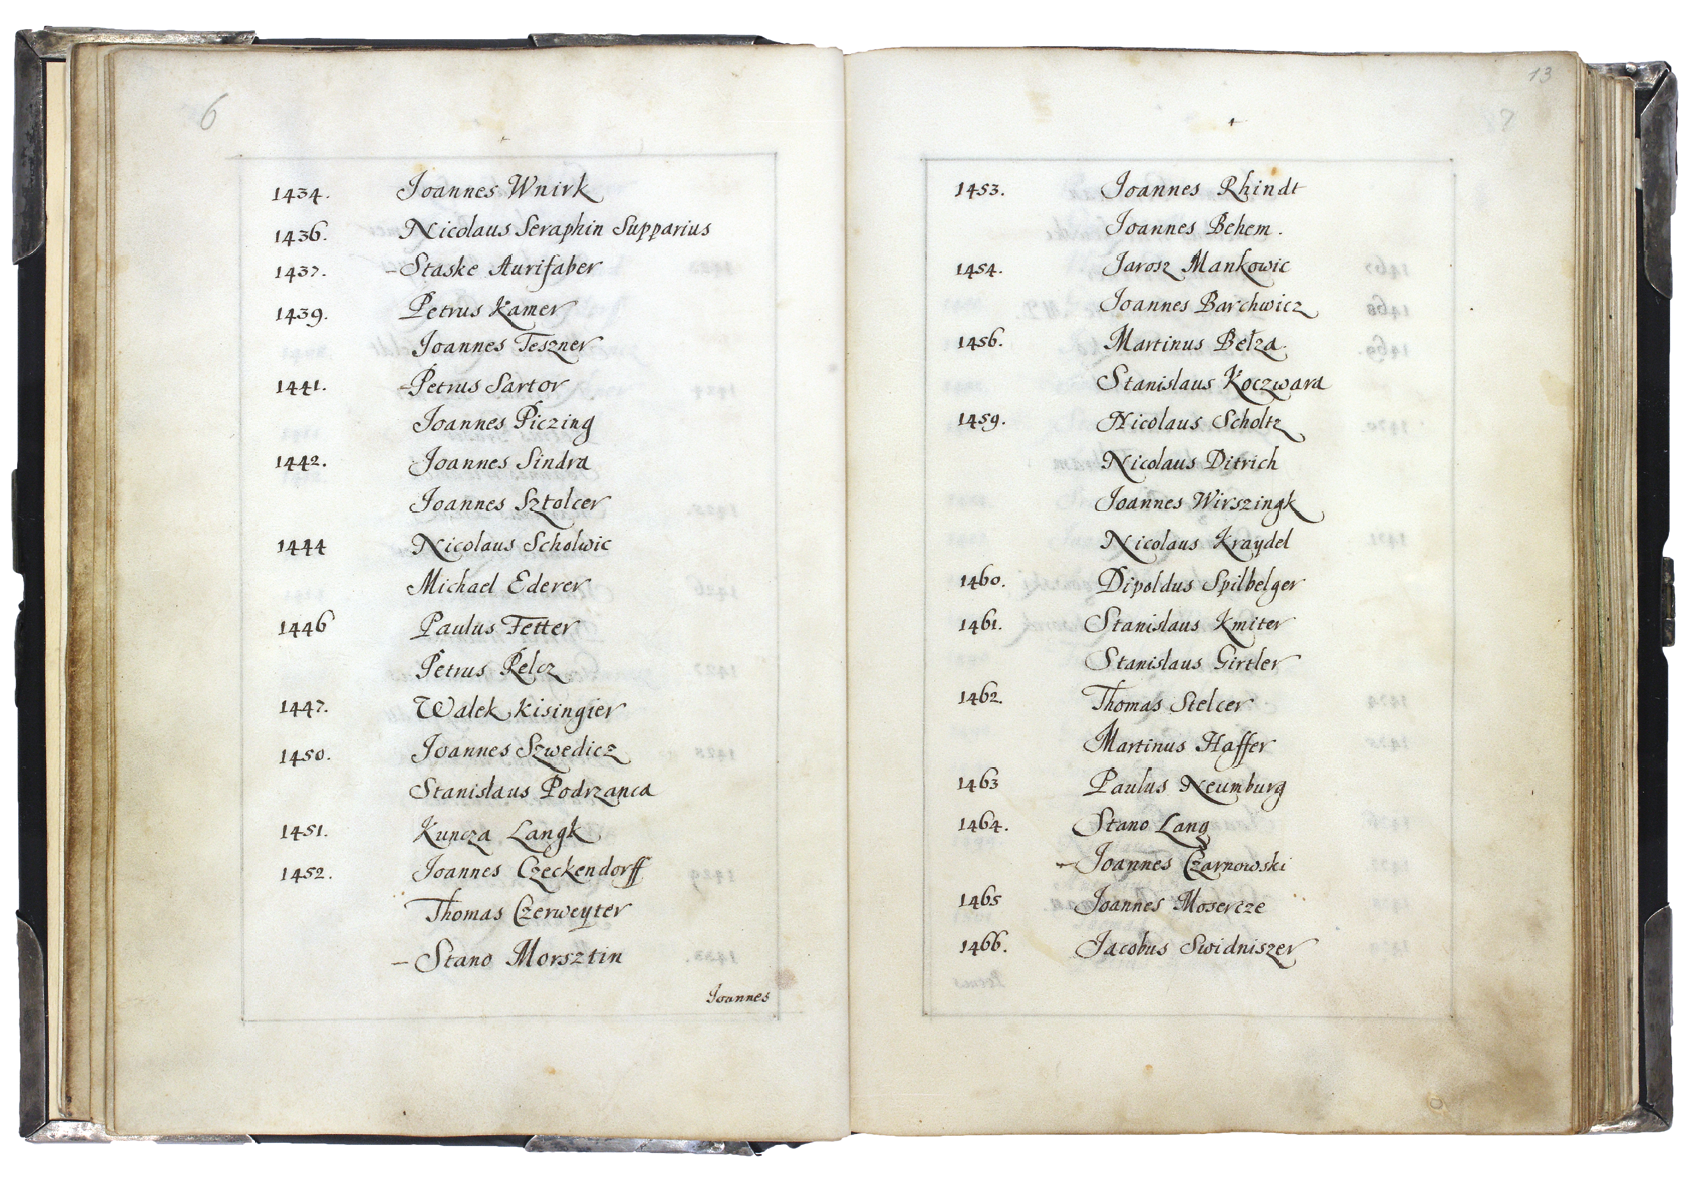 6
1434. Joannes Wnirk
1436. Nicolaus Seraphin Supparius
1437. – Staske Aurifaber
1439. Petrus Kamer
Joannes Teszner
1441. – Petrus Sartor
Joannes Piczing
1442. Joannes Sindra
Joannes Sztolcer
1444 Nicolaus Scholwic
Michael Ederer
1446 Paulus Fetter
Petrus Pelcz
1447. Walek Kisingier
1450. Joannes Szwedicz
Stanisłaus Podrzanca
1451. Kuncza Langk
1452. Joannes Czeckendorff
Thomas Czerweyter
– Stano Morsztin
Joannes
13
7
1453. Joannes Rhindt
Joannes Behem.
1454. Jarosz Mankowic
Joannes Barchwicz
1456. Martinus Bełza
Stanislaus Koczwara
1459. Nicolaus Scholtz
Nicolaus Ditrich
Joannes Wirszingk
Nicolaus Kraydel
1460. Dipoldus Spilbelger
1461. Stanislaus Kmiter
Stanislaus Girtler
1462. Thomas Stelcer
Martinus Haffer
1463 Paulus Neumburg
1464. Stano Lang
– Joannes Czarnowski
1465 Joannes Mosercze
1466. Jacobus Swidniszer